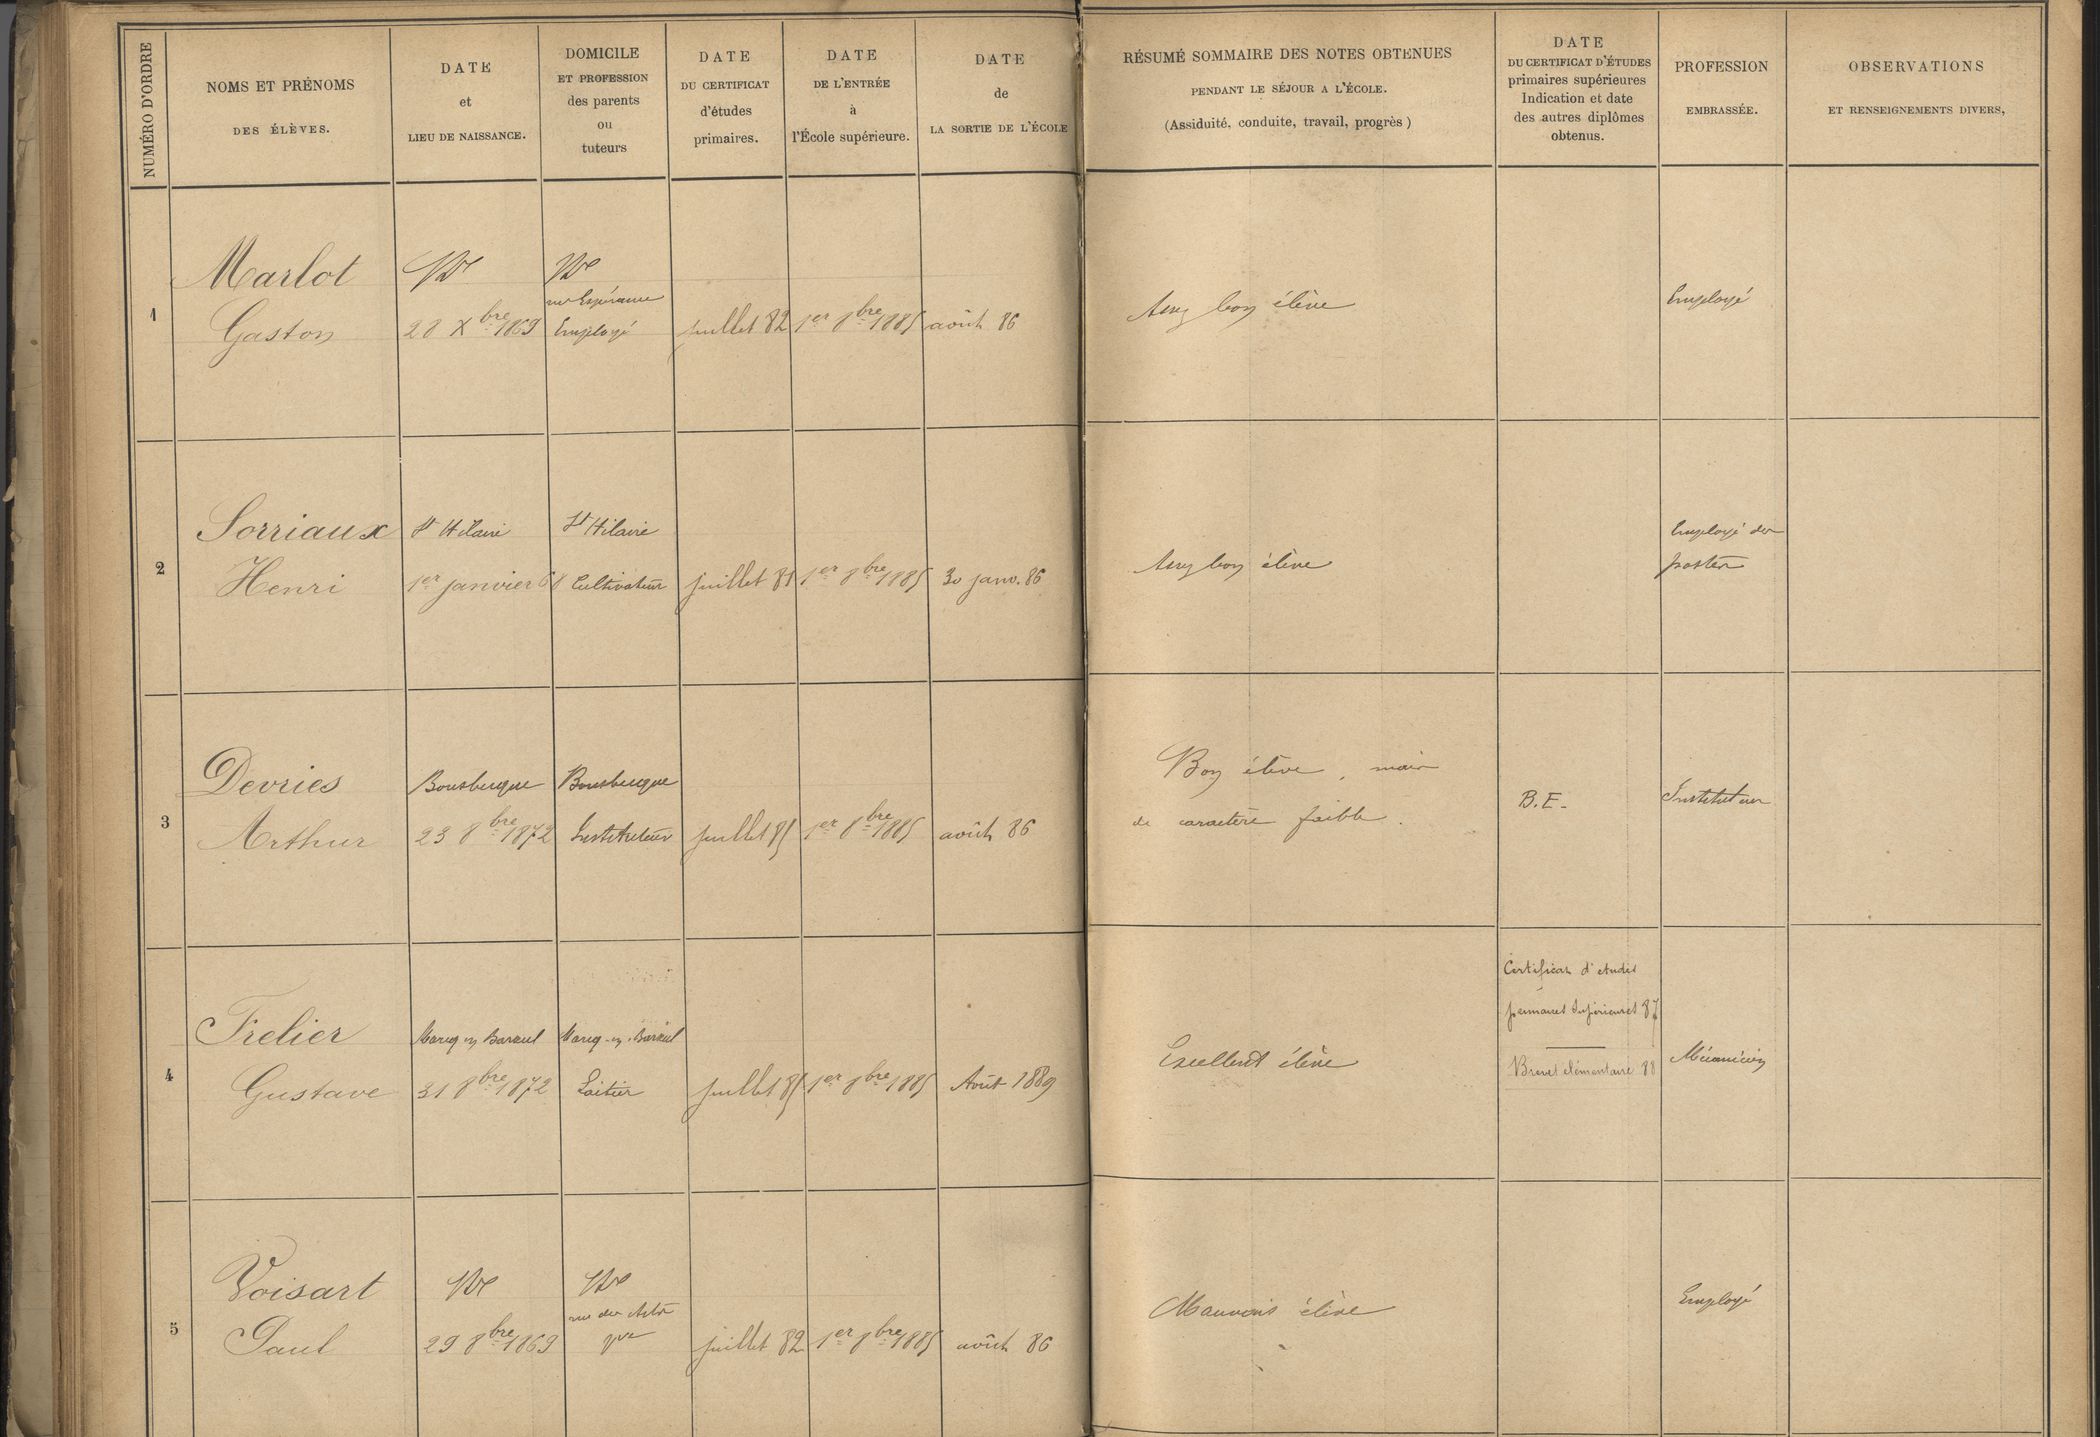 NUMÉRO D'ORDRE
NOMS ET PRÉNOMS
DES ÉLÈVES.
DATE
et
LIEU DE NAISSANCE.
DOMICILE
ET PROFESSION
des parents
ou
tuteurs
DATE
DU CERTIFICAT
d'études
primaires.
DATE
DE L'ENTRÉE
à
l'École supérieure.
DATE
de
LA SORTIE DE L'ÉCOLE
RÉSUMÉ SOMMAIRE DES NOTES OBTENUES
PENDANT LE SÉJOUR A L'ÉCOLE.
(Assiduité, conduite, travail, progrès)
DATE
DU CERTIFICAT D'ÉTUDES
primaires supérieures
Indication et date
des autres diplômes
obtenus.
PROFESSION
EMBRASSÉE.
OBSERVATIONS
ET RENSEIGNEMENTS DIVERS,
1
Marlot
Gaston
28 Xbre 1869
rue Espérance
Employé
juillet 82
1er 8bre 1885
août 86
Assez bon élève
Employé
2
Sorriaux
Henri
St Hilaire
1er janvier 68
St Hilaire
Cultivateur
juillet 81
1er 8bre 1885
30 janv. 86
Assez bon élève
Employé des
postes
3
Devries
Arthur
Bousbecque
23 8bre 1872
Bousbecque
Instituteur
juillet 85
1er 8bre 1885
août 86
Bon élève, mais
de caractère faible.
B.E.
Instituteur
4
Trelier
Gustave
Marcq en Baroeul
31 8bre 1872
Marcq-en-Baroeul
Laitier
juillet 85
1er 8bre 1885
Août 1889
Excellent élève
Certificat d'études
primaires supérieures 87
Brevet élémentaire 88
Mécanicien
5
Voisart
Paul
29 8bre 1869
rue des Arts
juillet 82
1er 8bre 1885
août 86
Mauvais élève
Employé